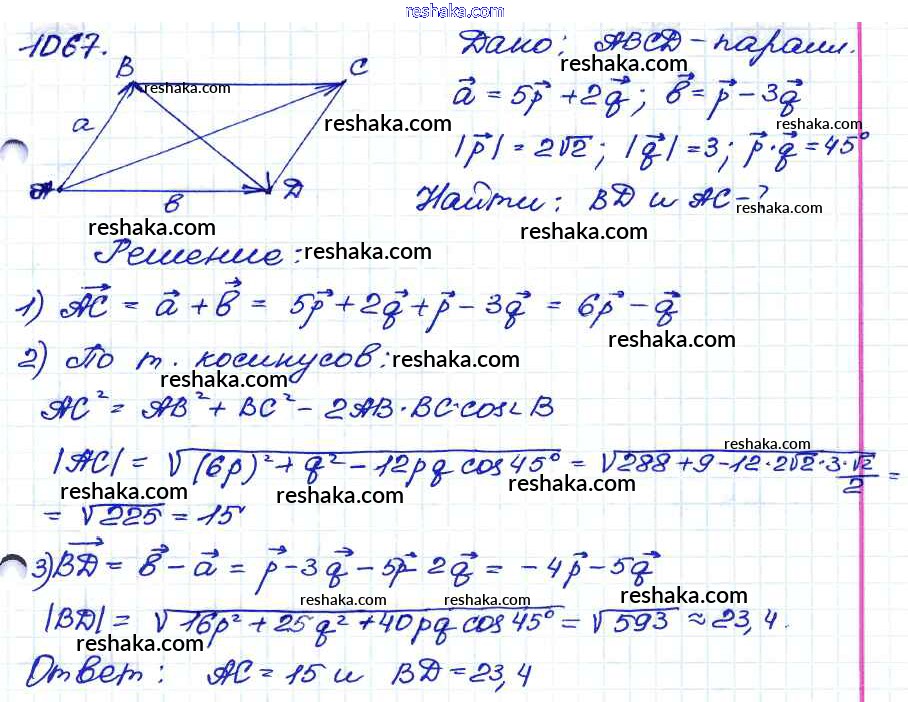 reshaka.com
1067.
Дано: ABCD - парал.
reshaka.com
B C
reshaka.com
a⃗ = 5p⃗ + 2q⃗ ; b⃗ = p⃗ - 3q⃗
a reshaka.com reshaka.com
|p⃗| = 2√2 ; |q⃗| = 3 ; p⃗·q⃗ = 45°
A в D
Найти: BD и AC - ? reshaka.com
reshaka.com reshaka.com
Решение: reshaka.com
1) AC⃗ = a⃗ + b⃗ = 5p⃗ + 2q⃗ + p⃗ - 3q⃗ = 6p⃗ - q⃗
reshaka.com
2) По т. косинусов: reshaka.com
reshaka.com
AC² = AB² + BC² - 2AB·BC·cos∠B
reshaka.com
|AC| = √(6p)² + q² - 12pq cos45° = √288 + 9 - 12·2√2·3·√2/2 =
reshaka.com reshaka.com reshaka.com
= √225 = 15
3) BD⃗ = b⃗ - a⃗ = p⃗ - 3q⃗ - 5p⃗ - 2q⃗ = -4p⃗ - 5q⃗
reshaka.com reshaka.com
|BD| = √16p² + 25q² + 40pq cos45° = √593 ≈ 23,4.
reshaka.com reshaka.com reshaka.com
Ответ: AC = 15 и BD = 23,4